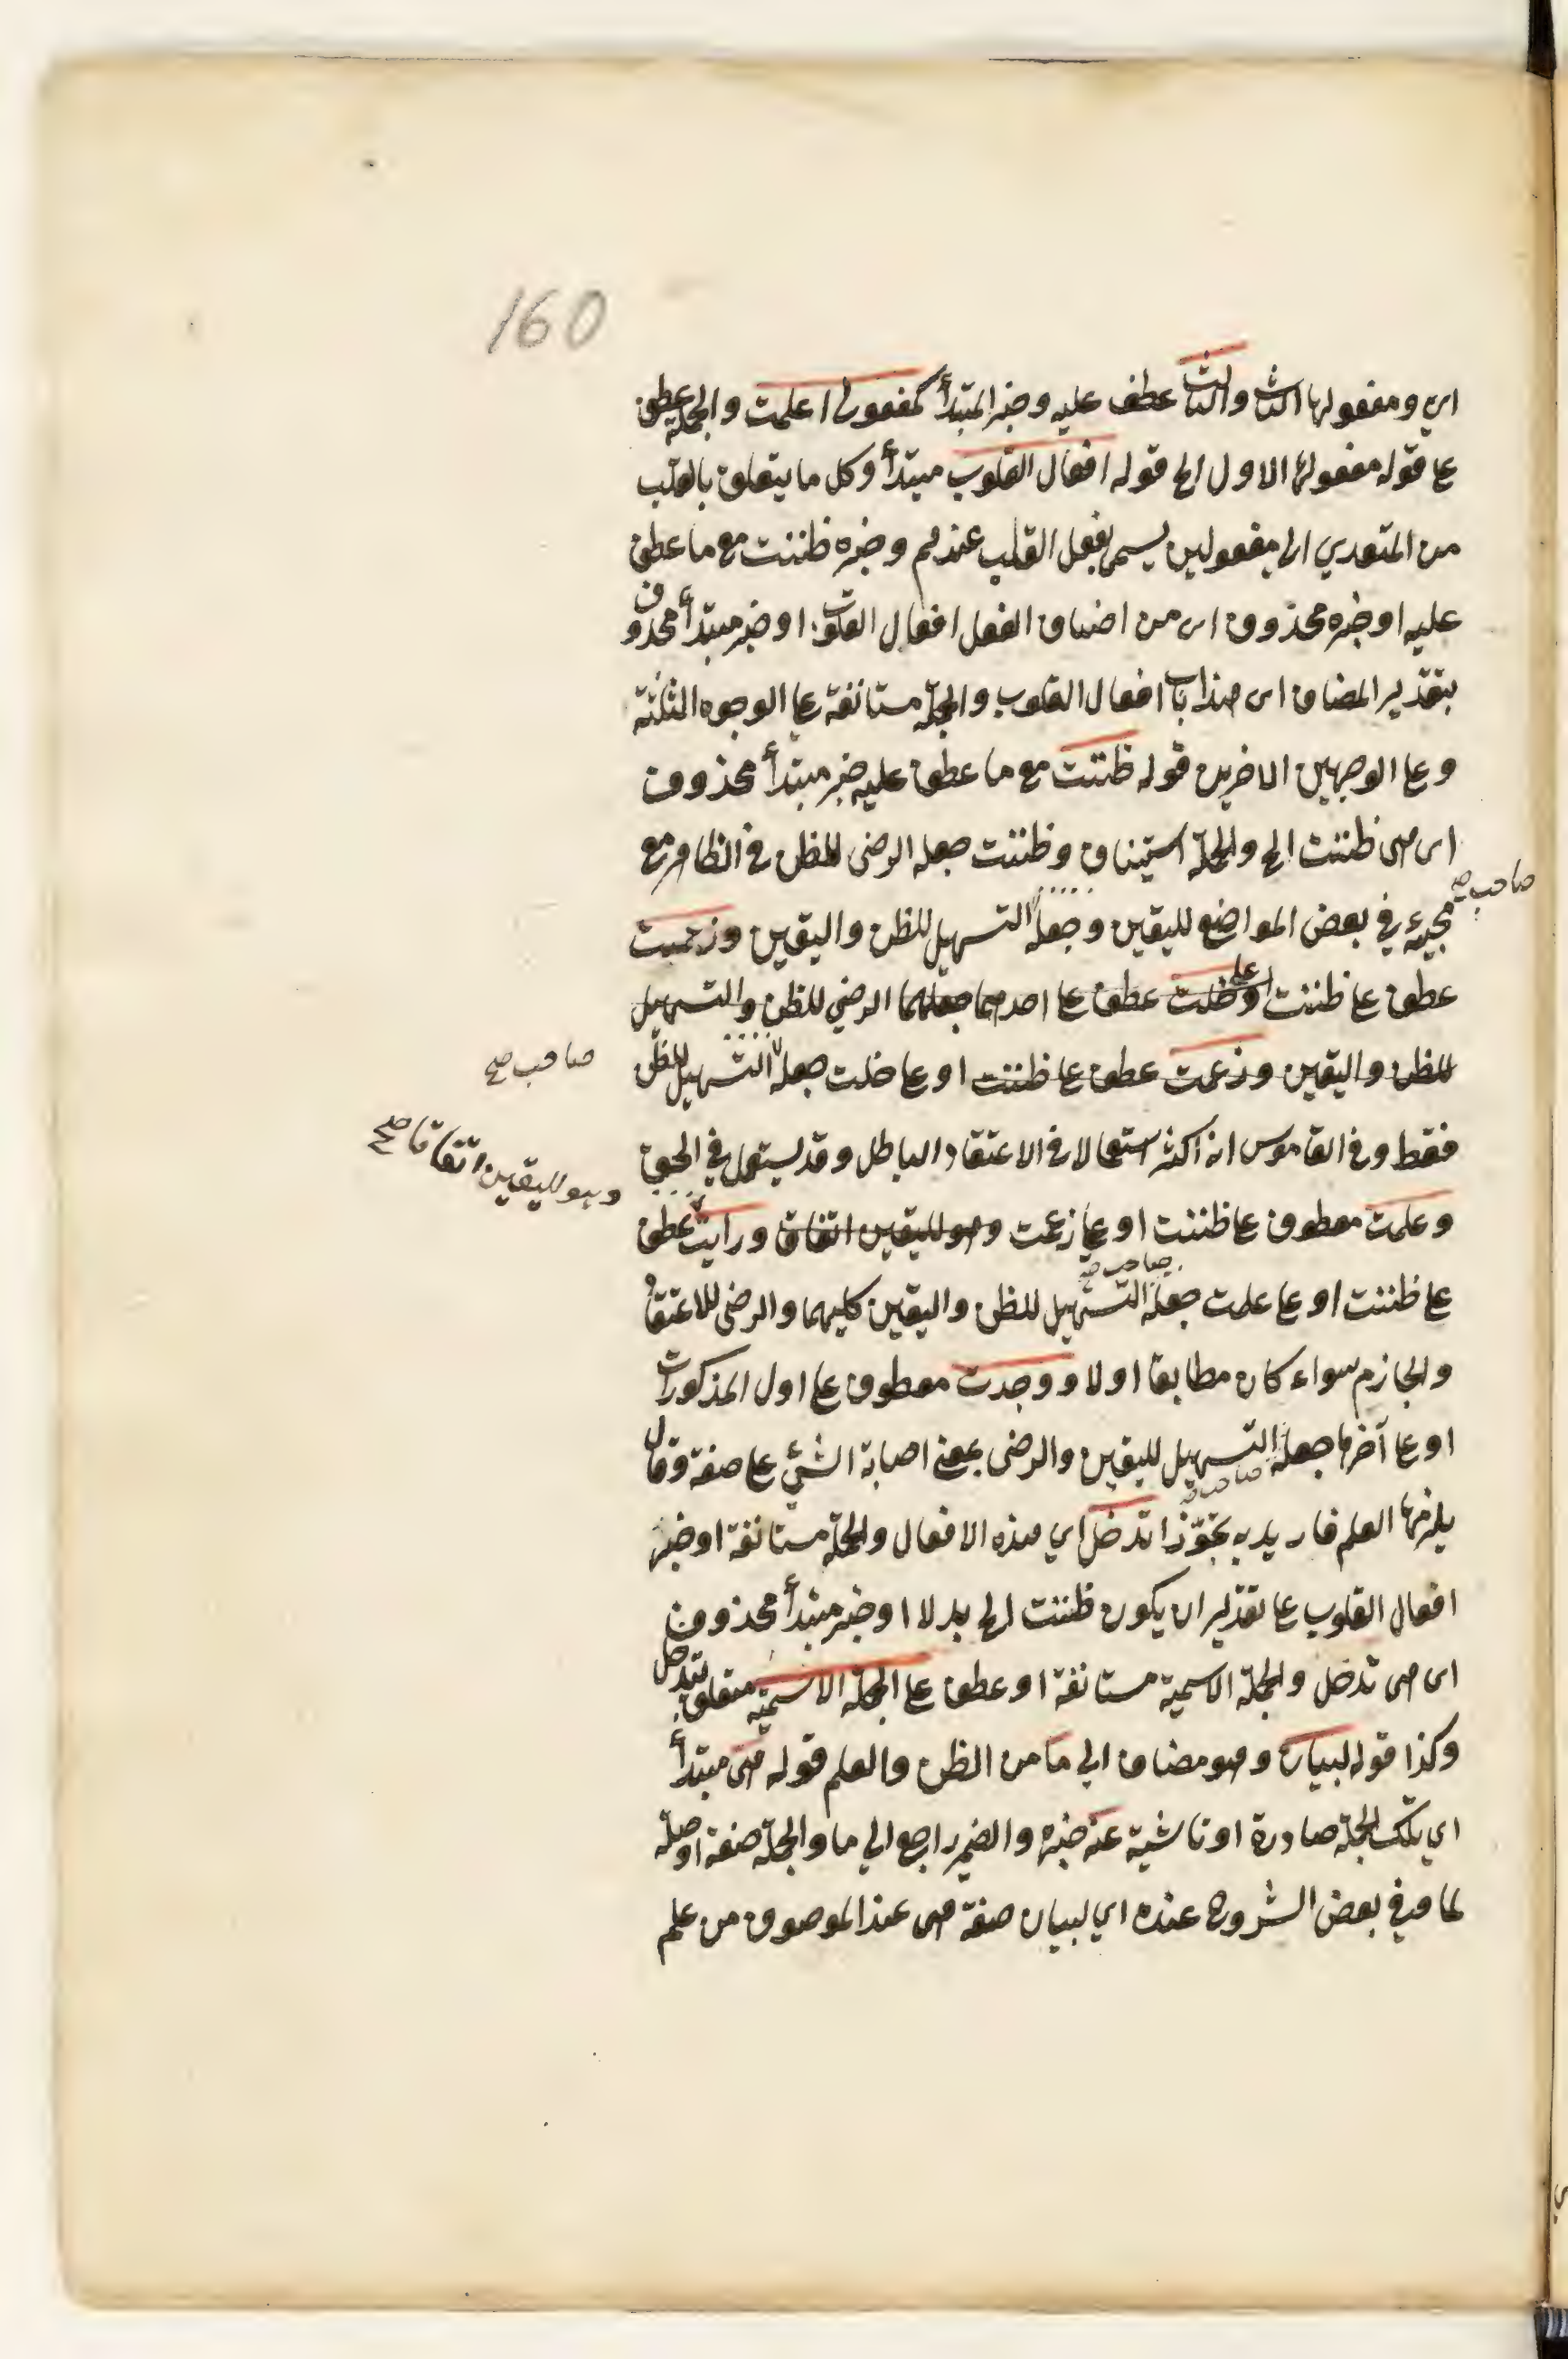 160
اي ومفعولها الثاني والثالث عطف عليه وخبر المبتدأ كمفعولي اعلمت والجملة عطف
عل قوله مفعولها الاول الخ قوله افعال القلوب مبتدأ وكل ما يتعلق بالقلب
من المتعدي الى مفعولين يسمى بفعل القلب عندهم وخبره ظننت مع ما عطف
عليه او خبره محذوف اى من اصناف الفعل افعال القلوب او خبر مبتدأ محذوف
بتقدير المضاف اى هذا باب افعال القلوب والجملة مستانفة عل الوجوه الثلثة
وعل الوجهين الاخرين قوله ظننت مع ما عطف عليه خبر مبتدأ محذوف
اى هى ظننت الخ والجملة استيناف وظننت جعله الرضى للظن في الظاهر مع
صاحب صح
مجيئه في بعض المواضع لليقين وجعله التسهيل للظن واليقين وزعمت
عطف عل ظننت او على خلت عطف عل احدهما جعلهما الرضي للظن والتسهيل
للظن واليقين وزعمت عطف عل ظننت او عل خلت جعله التسهيل للظن
صاحب صح
فقط وفي القاموس انه اكثر استعمالا في الاعتقاد الباطل وقد يستعمل في الحق
وهو لليقين اتفاقا صح
وعلمت معطوف عل ظننت او عل زعمت وهو لليقين اتفاق ورايت عطف
صاحب صح
عل ظننت او عل علمت جعله التسهيل للظن واليقين كليهما والرضى للاعتقاد
والجازم سواء كان مطابقا او لا ووجدت معطوف عل اول المذكورات
او عل آخرها جعله التسهيل لليقين والرضى بمعنى اصابة الشئ عل صفة وقال
صاحب صح
يلزمها العلم فاريد به تجوّزا تدخل اي هذه الافعال والجملة مستانفة او خبر
افعال القلوب عل تقدير ان يكون ظننت الخ بدلا او خبر مبتدأ محذوف
اى هى تدخل والجملة الاسمية مستانفة او عطف عل الجملة الاسمية متعلق بتدخل
وكذا قوله لبيان وهو مضاف الي ما من الظن والعلم قوله هى مبتدأ
اي تلك الجملة صادرة او ناشية عنه خبره والضمير راجع الي ما والجملة صفة او صلة
لما وفي بعض الشروح عنده اي لبيان صفة هى عند الموصوف من علم